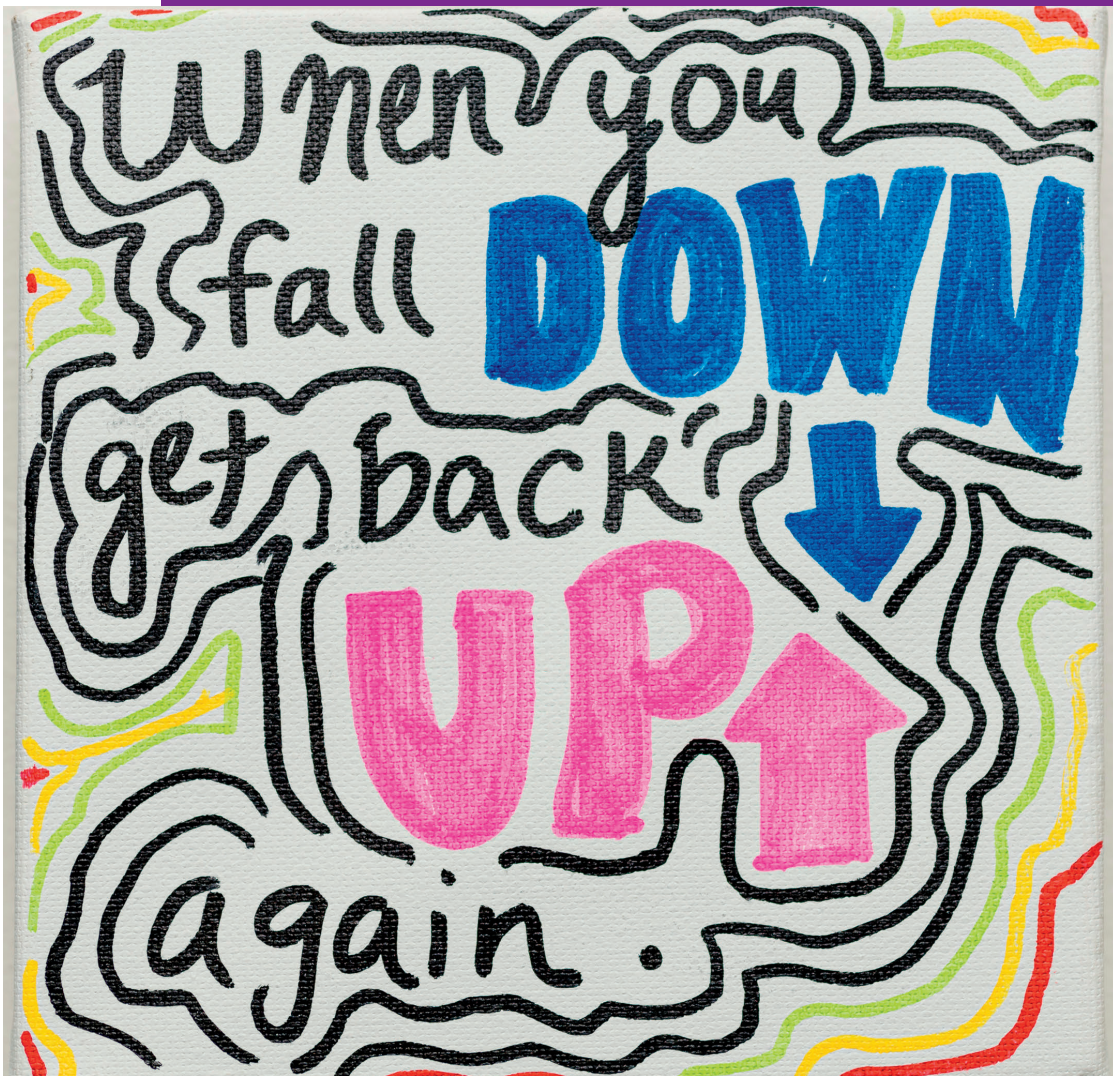 When you
fall DOWN
get back
UP
again.